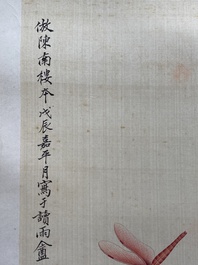 倣陳南樓本戊辰嘉平月寫于讀雨盦